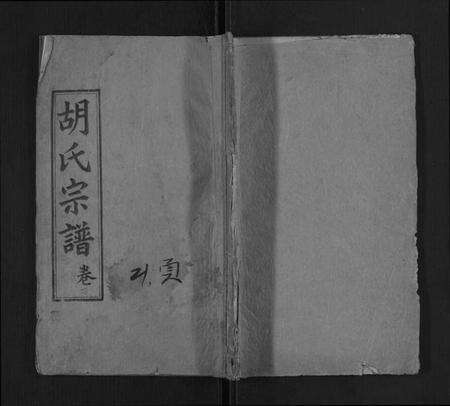 胡氏宗譜卷
21.